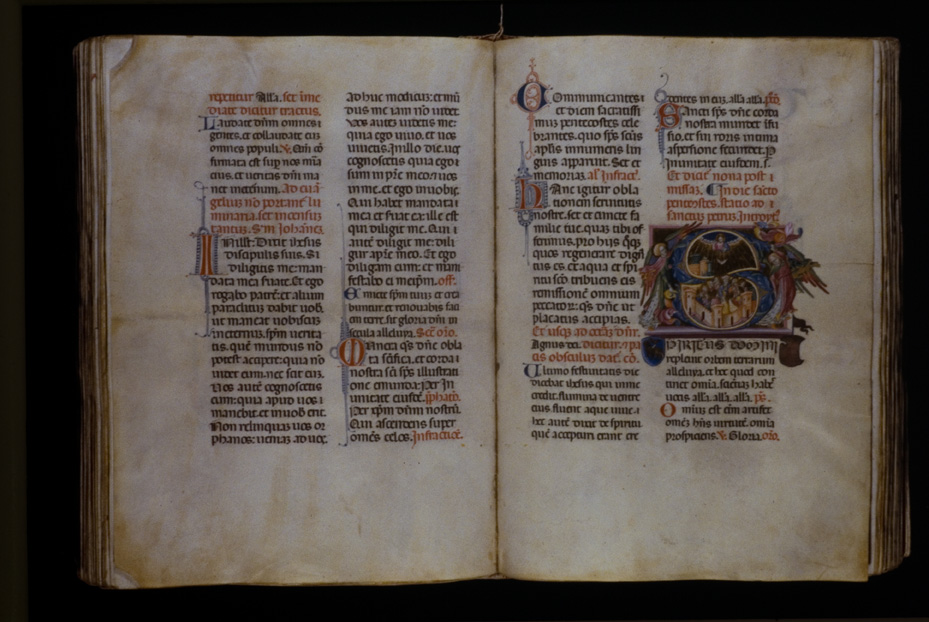 repetitur Alla. set ime
diate dicitur tractus.
Laudate dñm omnes
gentes. et collaudate eũ
omnes populi. V. Qm̃ cõ
firmata est sup nos mia
eius. et ueritas dñi ma
net in eternum. Ad euã
gelium nõ portant lu
minaria. set incensum
tantum. S. m Johanez.
In illo tempore Dixit ihesus
discipulis suis. Si
diligitis me: man
data mea seruate. Et ego
rogabo patrẽ: et alium
paraclitum dabit uob.
ut maneat uobiscum
in eternum. spm uerita
tis. quẽ mundus nõ
potest accipere: quia nõ
uidet eum. nec scit eum.
Vos autẽ cognoscetis
eum: quia apud uos
manebit. et in uob erit.
Non relinquam uos or
phanos: ueniam ad uos.
adhuc modicum: et mũ
dus me iam nõ uidet.
Vos autem uidetis me:
quia ego uiuo. et uos
uiuetis. In illo die. uos
cognoscetis quia ego
sum in pre meo. et uos
in me. et ego in uobis.
Qui habet mandata
mea et seruat ea: ille est
qui diligit me. Qui
autẽ diligit me: dili
getur a pre meo. Et ego
diligam eum: et mani
festabo ei meipm. off.
Emitte spm tuum et crea
buntur. et renouabis faci
em terre. sit gloria dñi in
secula alleluya. Sec̃. oro.
Munera qs dñe obla
ta sc̃ifica. et corda
nostra sc̃i sps illustrati
one emunda. Per. In
unitate eiusdẽ. pfatio.
Per xpm dñm nostrũ.
Qui ascendens super
omẽs celos. Infra actiõe.
Communicantes
et diem sacratissi
mum pentecostes cele
brantes. quo sps sc̃us
aplis innumeris lin
guis apparuit. Set et
memoriam. al. Infra act.
Hanc igitur obla
tionem seruitutis
nostre. set et cuncte fa
milie tue. quam tibi of
ferimus. pro hiis qq̃
quos regenerare digna
tus es. ex aqua et spi
ritu sc̃o. tribuens eis
remissionẽ omnium
peccatorum: qs dñe ut
placatus accipias.
Et usq ad cetera dñr.
Agnus dei. dicitur. et pa
cis osculum dat. cõ.
Ultimo festiuitatis die
dicebat ihesus qui in me
credit. flumina de uentre
eius fluent aque uiue.
hec autẽ dixit de spiritu
quẽ accepturi erant cre
dentes in eum. alla alla. pco.
Sancti sps dñe corda
nostra mundet ifu
sio. et sui roris intima
aspersione fecundet. P
In unitate eiusdem. s.
Et dicitur nona post
missam. In die sancto
pentecostes. statio ad
sanctum petrum. Introyt.
Spiritus domini
repleuit orbem terrarum
alleluya. et hoc quod con
tinet omia. scientiam habet
uocis alla. alla. alla. ps.
Omium est eim artifex
omẽz hñs uirtutẽ. omia
prospiciens. V. Gloria. oro.